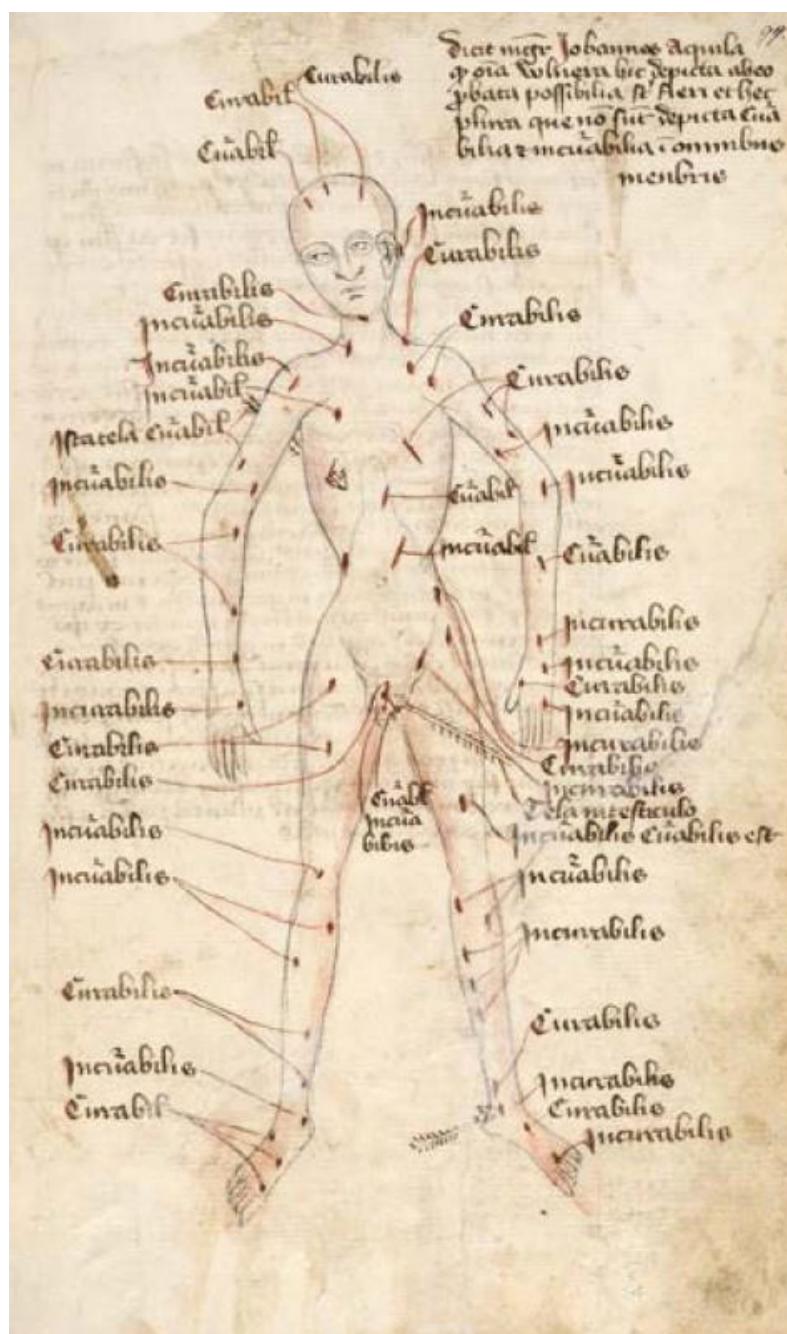 99.
dicit mgr Johannes Aquila
q oia vulnera hic depicta ab eo
probata possibilia st fieri et hec
plura que nō sūt depicta Cūa
bilia ⁊ incūabilia ī omnibus
menbris
Curabilis
Curabil
Cūabil
Incūabilis
Curabilis
Curabilis
Incūabilis
Curabilis
Incūabilis
Curabilis
Incūabil
Cūabil
Incūabilis
Incūabilis
Incūabilis
Cūabil
Curabilis
Incūabil
Cūabilis
Incurabilis
Cūrabilis
Incūabilis
Curabilis
Incurabilis
Incūabilis
Curabilis
Incurabilis
Curabilis
Curabilis
Incurabilis
Cūabil
Incūa
bilis
Tela in testiculo
Incūabilis
Incūabilis Cūabilis est
Incūabilis
Incūabilis
Incurabilis
Curabilis
Curabilis
Incūabilis
Incurabilis
Curabil
Curabilis
Incurabilis